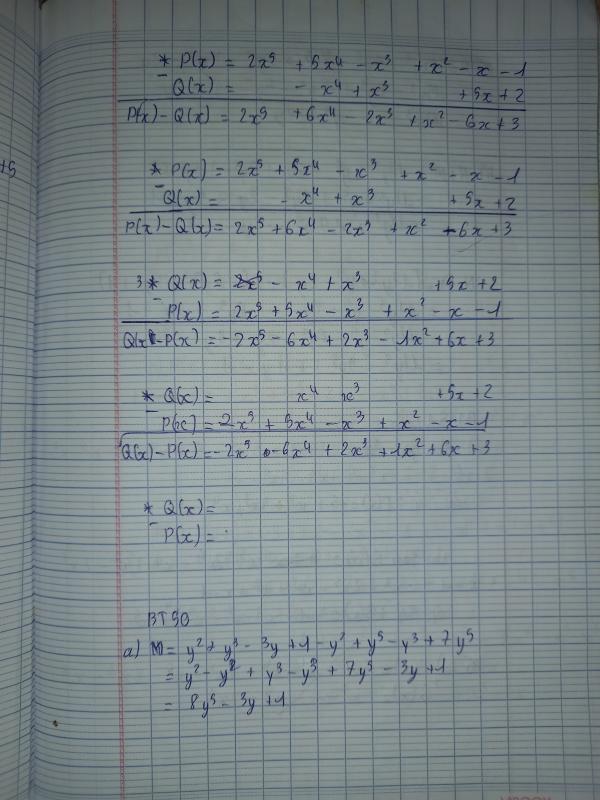 * P(x) = 2x⁵ + 5x⁴ - x³ + x² - x - 1
- Q(x) = - x⁴ + x³ + 5x + 2
P(x) - Q(x) = 2x⁵ + 6x⁴ - 2x³ + x² - 6x + 3
* P(x) = 2x⁵ + 5x⁴ - x³ + x² - x - 1
- Q(x) = - x⁴ + x³ + 5x + 2
P(x) - Q(x) = 2x⁵ + 6x⁴ - 2x³ + x² - 6x + 3
3 * Q(x) = - x⁴ + x³ + 5x + 2
- P(x) = 2x⁵ + 5x⁴ - x³ + x² - x - 1
Q(x) - P(x) = -2x⁵ - 6x⁴ + 2x³ - 1x² + 6x + 3
* Q(x) = x⁴ x³ + 5x + 2
- P(x) = 2x⁵ + 5x⁴ - x³ + x² - x - 1
Q(x) - P(x) = -2x⁵ - 6x⁴ + 2x³ + 1x² + 6x + 3
* Q(x) =
- P(x) =
BT50
a) M = y² + y³ - 3y + 1 - y² + y⁵ - y³ + 7y⁵
= y² - y² + y³ - y³ + 7y⁵ - 3y + 1
= 8y⁵ - 3y + 1